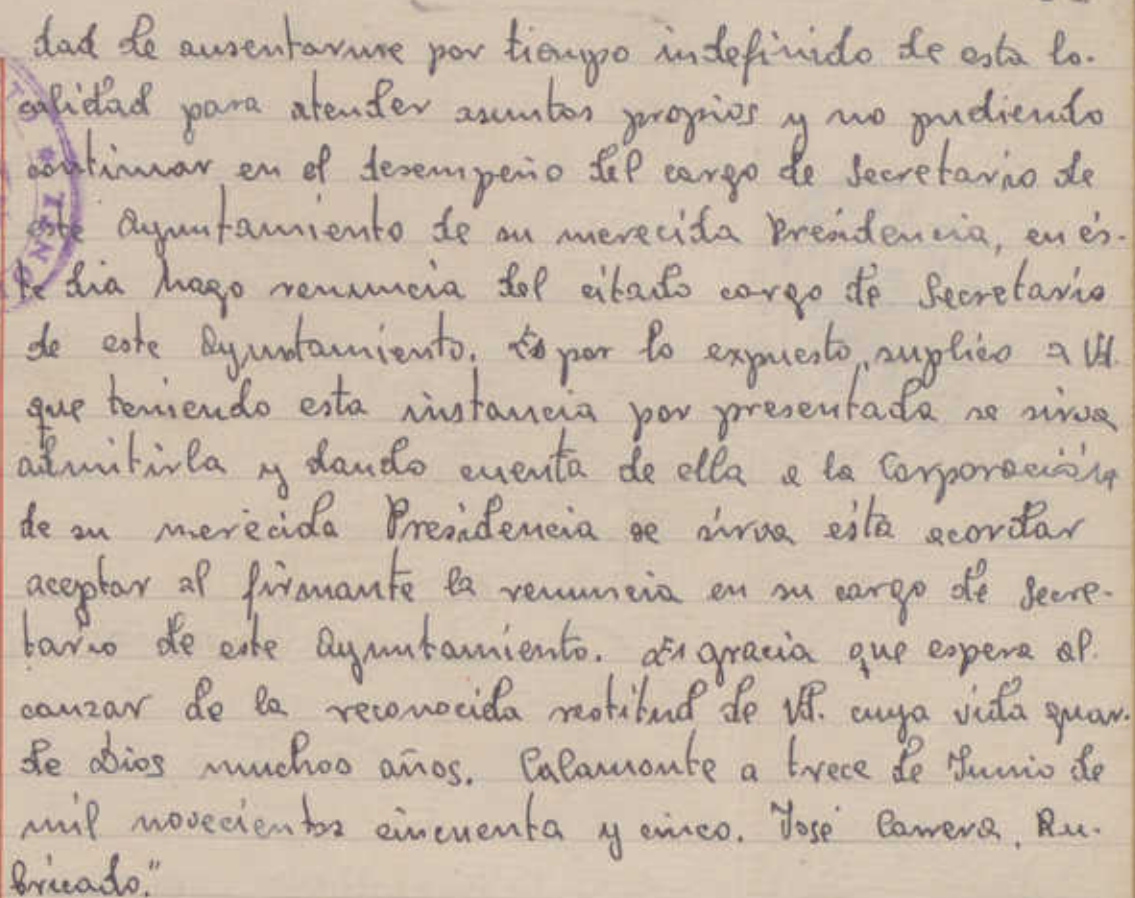 dad de ausentarme por tiempo indefinido de esta lo-
calidad para atender asuntos propios y no pudiendo
continuar en el desempeño del cargo de Secretario de
este Ayuntamiento de su merecida Presidencia, en és-
te dia hago renuncia del citado cargo de Secretario
de este Ayuntamiento. Es por lo expuesto, suplico a Vd.
que teniendo esta instancia por presentada se sirva
admitirla y dando cuenta de ella a la Corporación
de su merecida Presidencia se sirva ésta acordar
aceptar al firmante la renuncia en su cargo de Secre-
tario de este Ayuntamiento. Es gracia que espera al-
canzar de la reconocida restitud de Vd. cuya vida guar-
de Dios muchos años. Calamonte a trece de Junio de
mil novecientos cincuenta y cinco. José Carrera, Ru-
bricado."